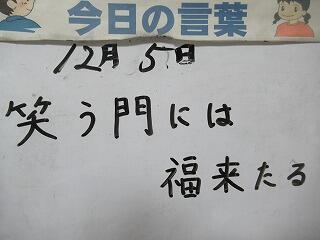 今日の言葉
12月5日
笑う門には
福来たる